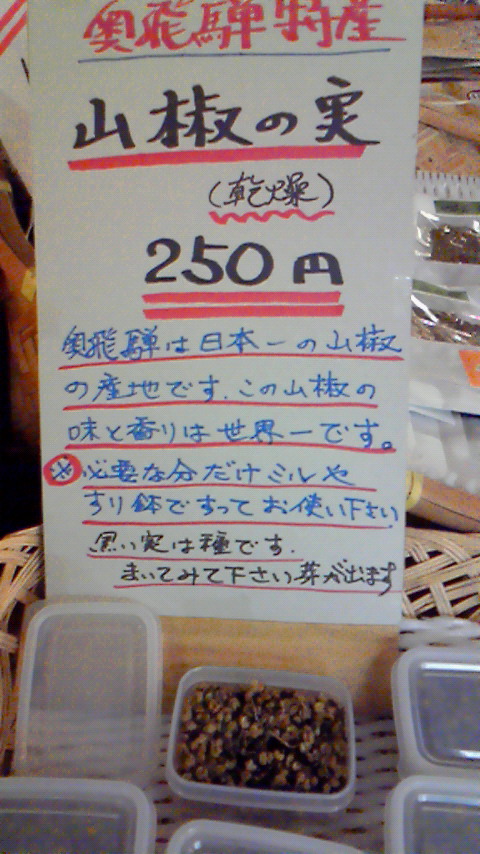 奥飛騨特産
山椒の実
(乾燥)
250円
奥飛騨は日本一の山椒
の産地です.この山椒の
味と香りは世界一です。
※必要な分だけミルや
すり鉢ですってお使い下さい
黒い実は種です.
まいてみて下さい芽が出ます